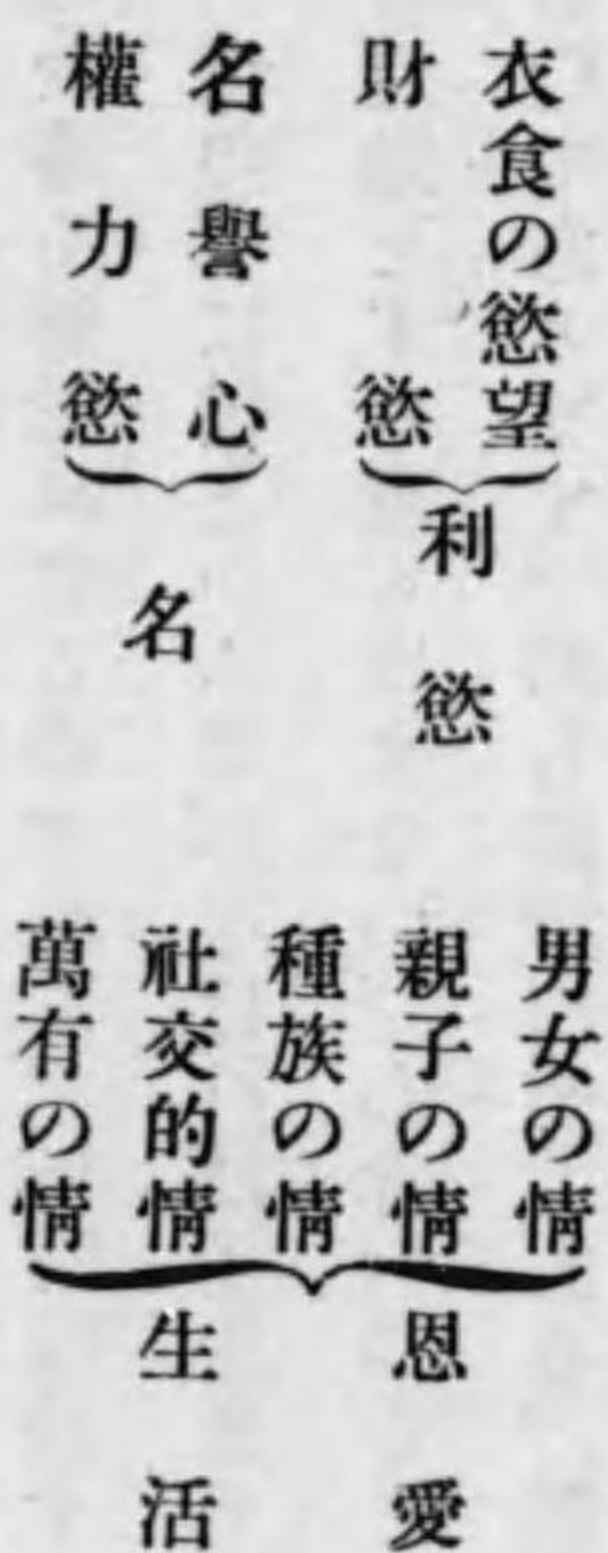 衣食の慾望
財慾
利慾
名譽心
權力慾
名
男女の情
親子の情
種族の情
社交的情
萬有の情
恩愛
生活